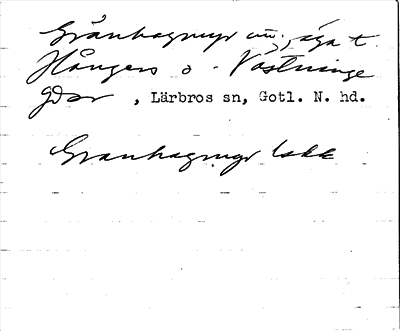 Gränhagmyr m., äga t.
Hångers o. Västninge
gdar, Lärbros sn, Gotl. N. hd.
Granhagmyr lskk